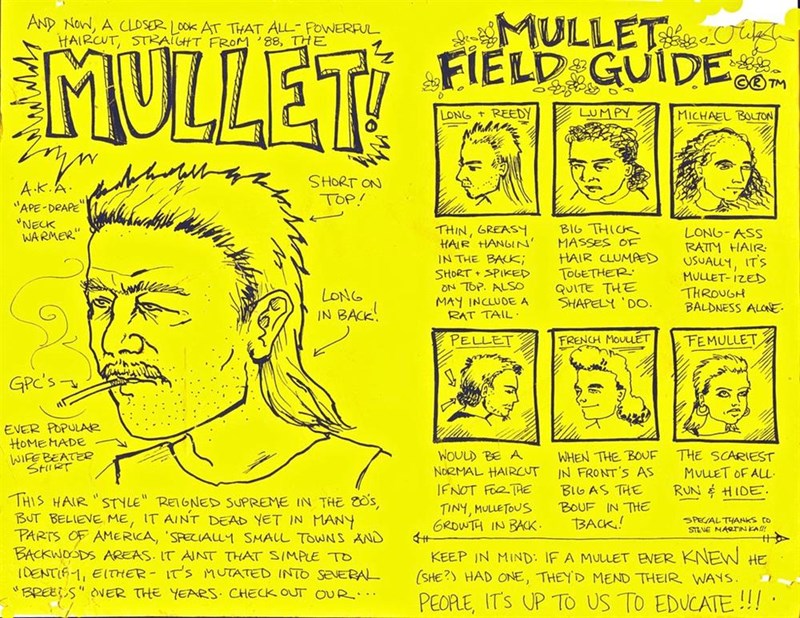 AND NOW, A CLOSER LOOK AT THAT ALL-POWERFUL
HAIRCUT, STRAIGHT FROM '88, THE
MULLET!
A.K.A.
"APE-DRAPE"
"NECK
WARMER"
SHORT ON
TOP!
LONG
IN BACK!
GPC'S
EVER POPULAR
HOMEMADE
WIFEBEATER
SHIRT
THIS HAIR "STYLE" REIGNED SUPREME IN THE 80'S,
BUT BELIEVE ME, IT AIN'T DEAD YET IN MANY
PARTS OF AMERICA, 'SPECIALLY SMALL TOWNS AND
BACKWOODS AREAS. IT AINT THAT SIMPLE TO
IDENTIFY, EITHER- IT'S MUTATED INTO SEVERAL
"BREEDS" OVER THE YEARS. CHECK OUT OUR...
MULLET
FIELD GUIDE ©®TM
LONG + REEDY
THIN, GREASY
HAIR HANGIN'
IN THE BACK;
SHORT + SPIKED
ON TOP. ALSO
MAY INCLUDE A
RAT TAIL.
LUMPY
BIG THICK
MASSES OF
HAIR CLUMPED
TOGETHER.
QUITE THE
SHAPELY 'DO.
MICHAEL BOLTON
LONG-ASS
RATTY HAIR.
USUALLY, IT'S
MULLET-IZED
THROUGH
BALDNESS ALONE.
PELLET
WOULD BE A
NORMAL HAIRCUT
IF NOT FOR THE
TINY, MULLETOUS
GROWTH IN BACK.
FRENCH MOULLET
WHEN THE BOUF
IN FRONT'S AS
BIG AS THE
BOUF IN THE
BACK!
FEMULLET
THE SCARIEST
MULLET OF ALL.
RUN & HIDE.
SPECIAL THANKS TO
STEVE
KEEP IN MIND: IF A MULLET EVER KNEW HE
(SHE?) HAD ONE, THEY'D MEND THEIR WAYS.
PEOPLE, IT'S UP TO US TO EDUCATE!!!